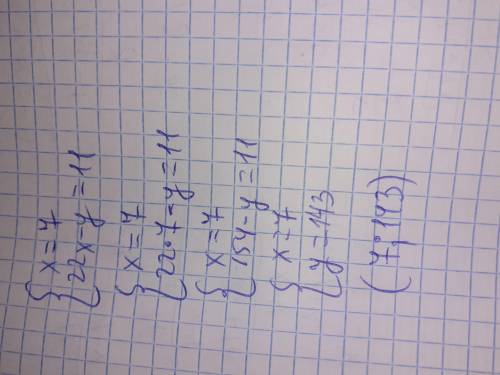 { x = 7
{ 22x - y = 11
{ x = 7
{ 22 · 7 - y = 11
{ x = 7
{ 154 - y = 11
{ x = 7
{ y = 143
(7; 143)